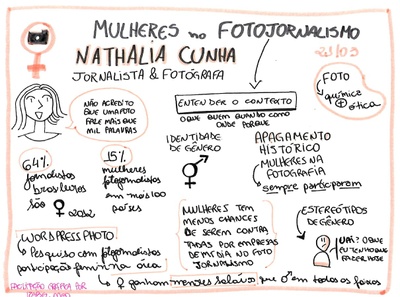 MULHERES no FOTOJORNALISMO
NATHALIA CUNHA
23/03
JORNALISTA & FOTÓGRAFA
NÃO ACREDITO
QUE UMA FOTO
FALE MAIS QUE
MIL PALAVRAS
ENTENDER O CONTEXTO
O QUE QUEM QUANDO COMO
ONDE PORQUE
FOTO
química
ótica
IDENTIDADE
DE GÊNERO
APAGAMENTO
HISTÓRICO
MULHERES NA
FOTOGRAFIA
sempre participaram
64%
jornalistas
brasileiros
são ♀ 2012
15%
mulheres
fotojornalistas
em mais 100
países
MULHERES TEM
MENOS CHANCES
DE SEREM CONTRA
TADAS POR EMPRESAS
DE MÍDIA NO FOTO
JORNALISMO
ESTEREÓTIPOS
DE GÊNERO
O QUE
EU TENHO QUE
FAZER HOJE
WORDPRESS PHOTO
Pesquisa com fotojornalistas
participação feminina área
♀ ganham menores salários que ♂ em todas as faixas
FACILITAÇÃO GRÁFICA POR